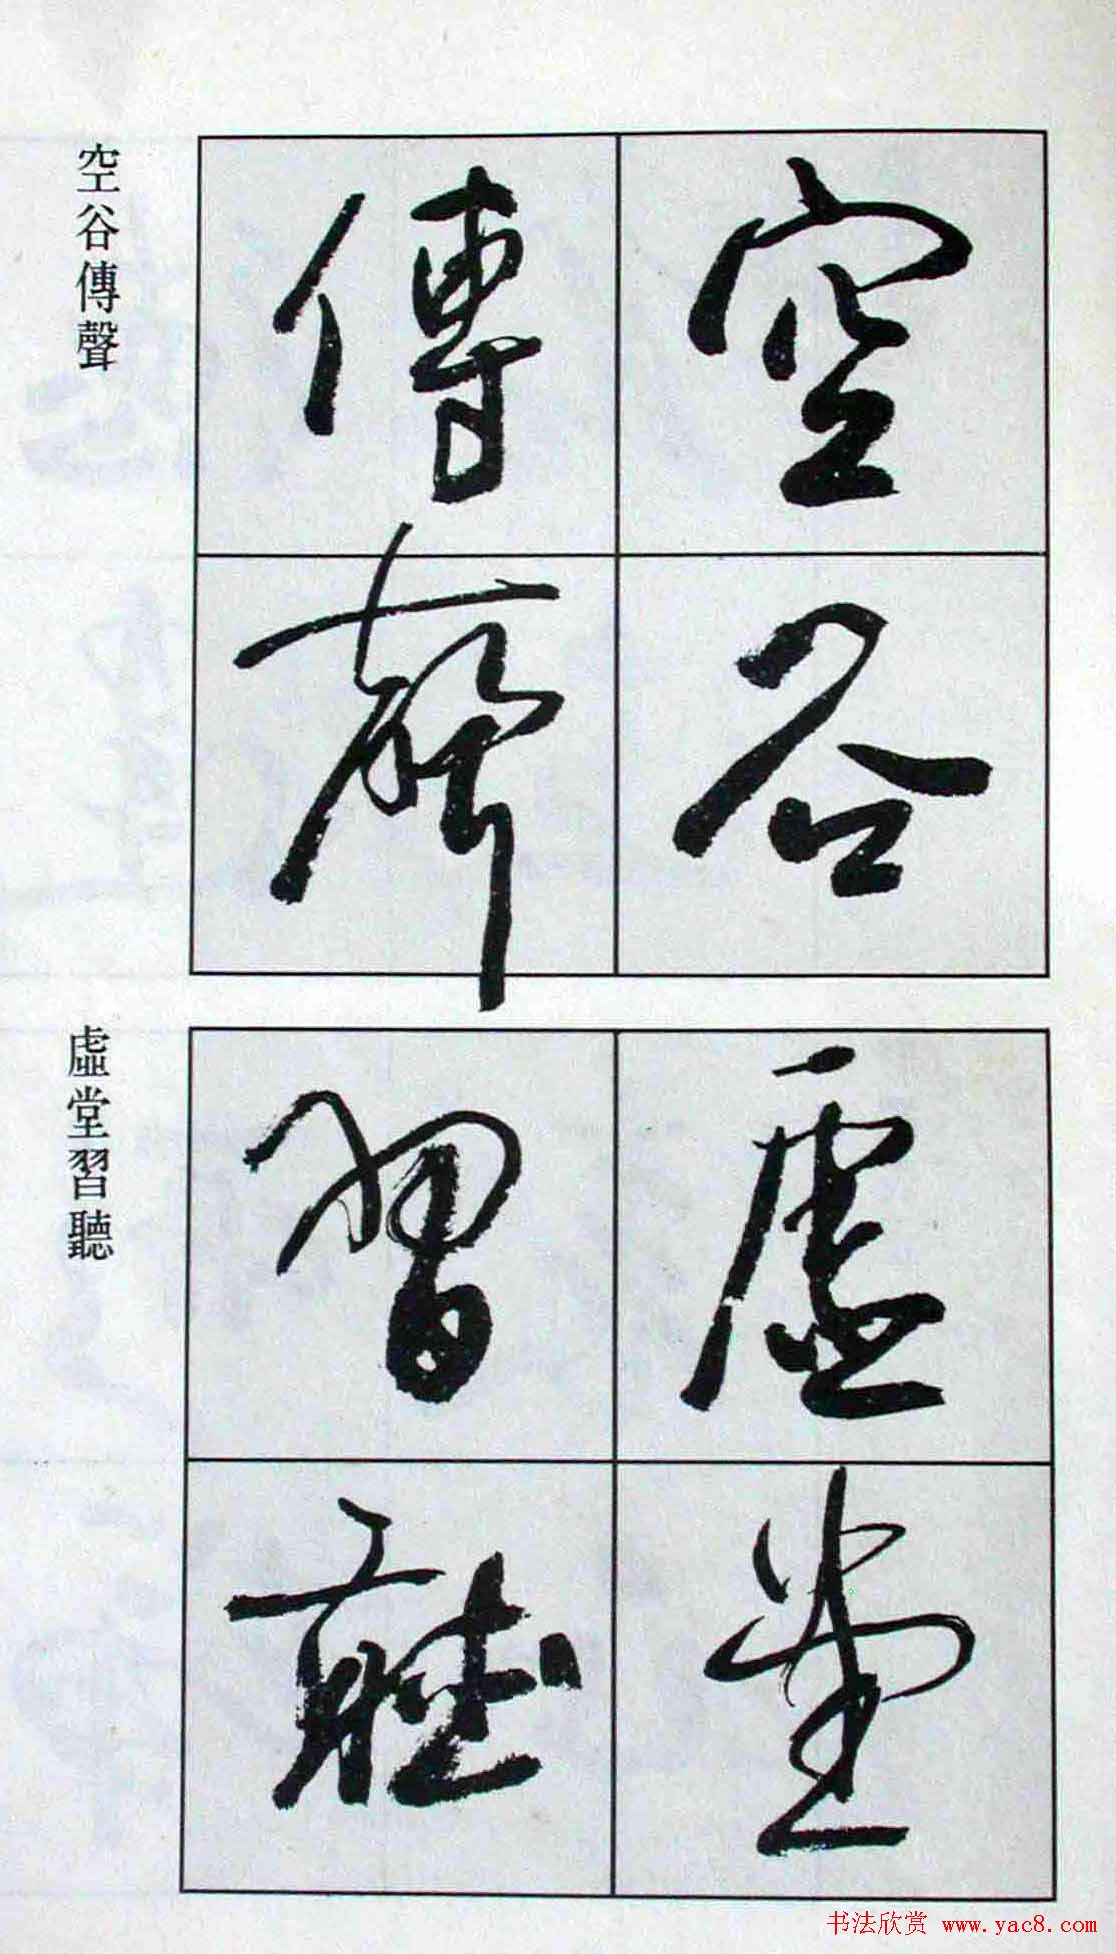 空谷
傳聲
空谷傳聲
虛堂
習聽
虛堂習聽
书法欣赏 www.yac8.com